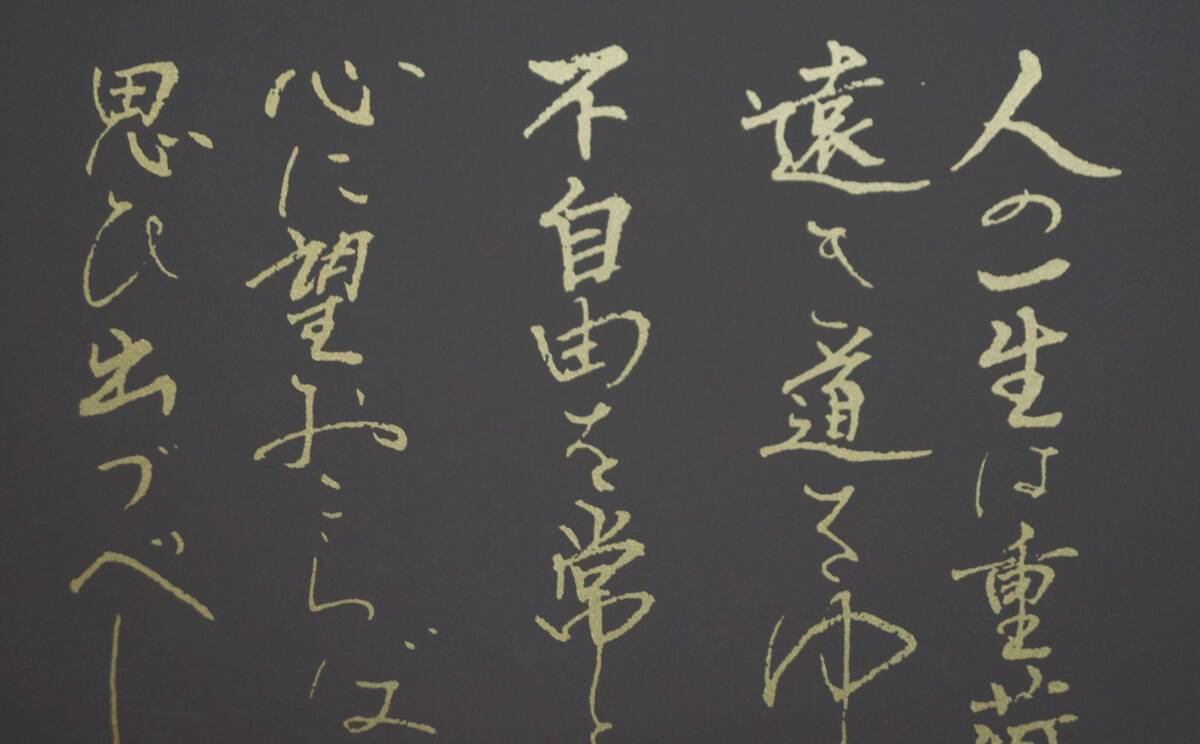 人の一生は重荷
遠き道をゆ
不自由を常と
心に望おこらば
思ひ出づべし